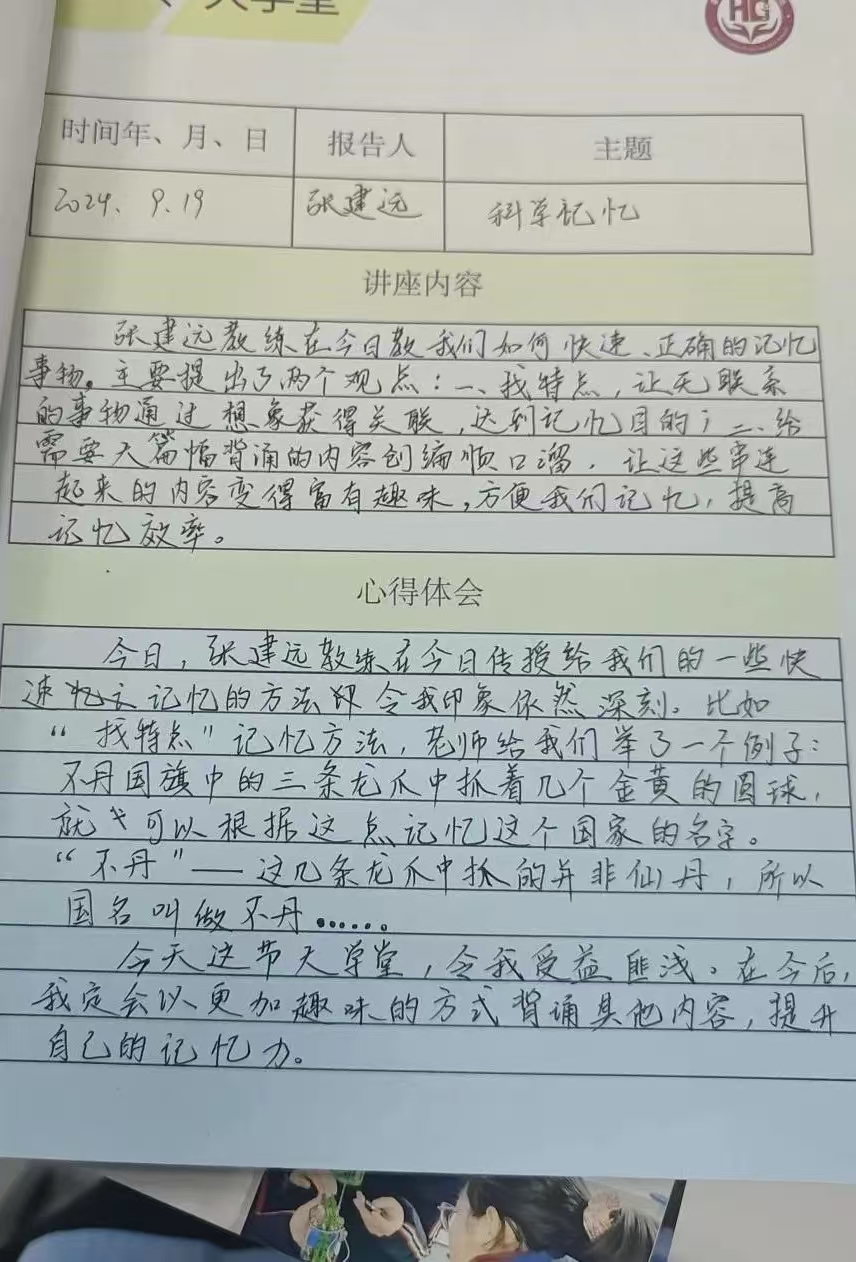 大学堂
HG
时间年、月、日 报告人 主题
2024. 9.19 张建远 科学记忆
讲座内容
张建远教练在今日教我们如何快速、正确的记忆
事物。主要提出了两个观点：一、找特点，让无联系
的事物通过想象获得关联，达到记忆目的；二、给
需要大篇幅背诵的内容创编顺口溜，让这些串连
起来的内容变得富有趣味，方便我们记忆，提高
记忆效率。
心得体会
今日，张建远教练在今日传授给我们的一些快
速记忆的方法令我印象依然深刻。比如
“找特点”记忆方法，老师给我们举了一个例子：
不丹国旗中的三条龙爪中抓着几个金黄的圆球，
就可以根据这点记忆这个国家的名字。
“不丹”——这几条龙爪中抓的并非仙丹，所以
国名叫做不丹……。
今天这节大学堂，令我受益匪浅。在今后，
我定会以更加趣味的方式背诵其他内容，提升
自己的记忆力。